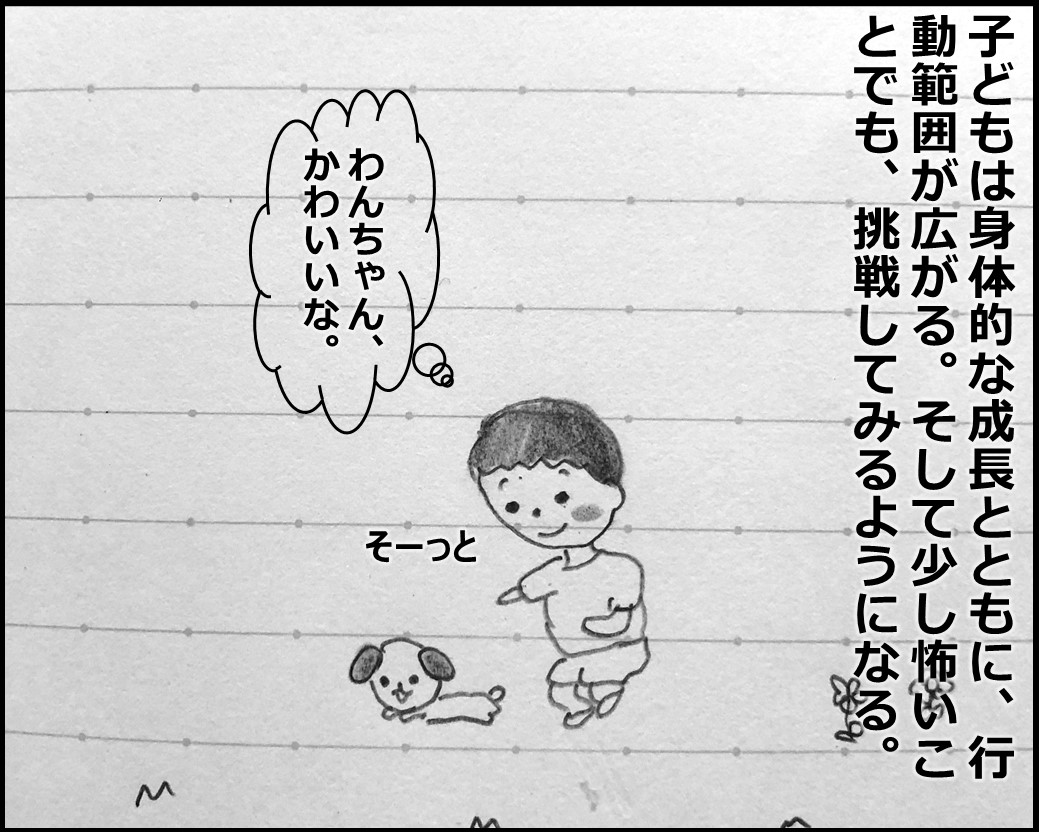 子どもは身体的な成長とともに、行
動範囲が広がる。そして少し怖いこ
とでも、挑戦してみるようになる。
わんちゃん、
かわいいな。
そーっと